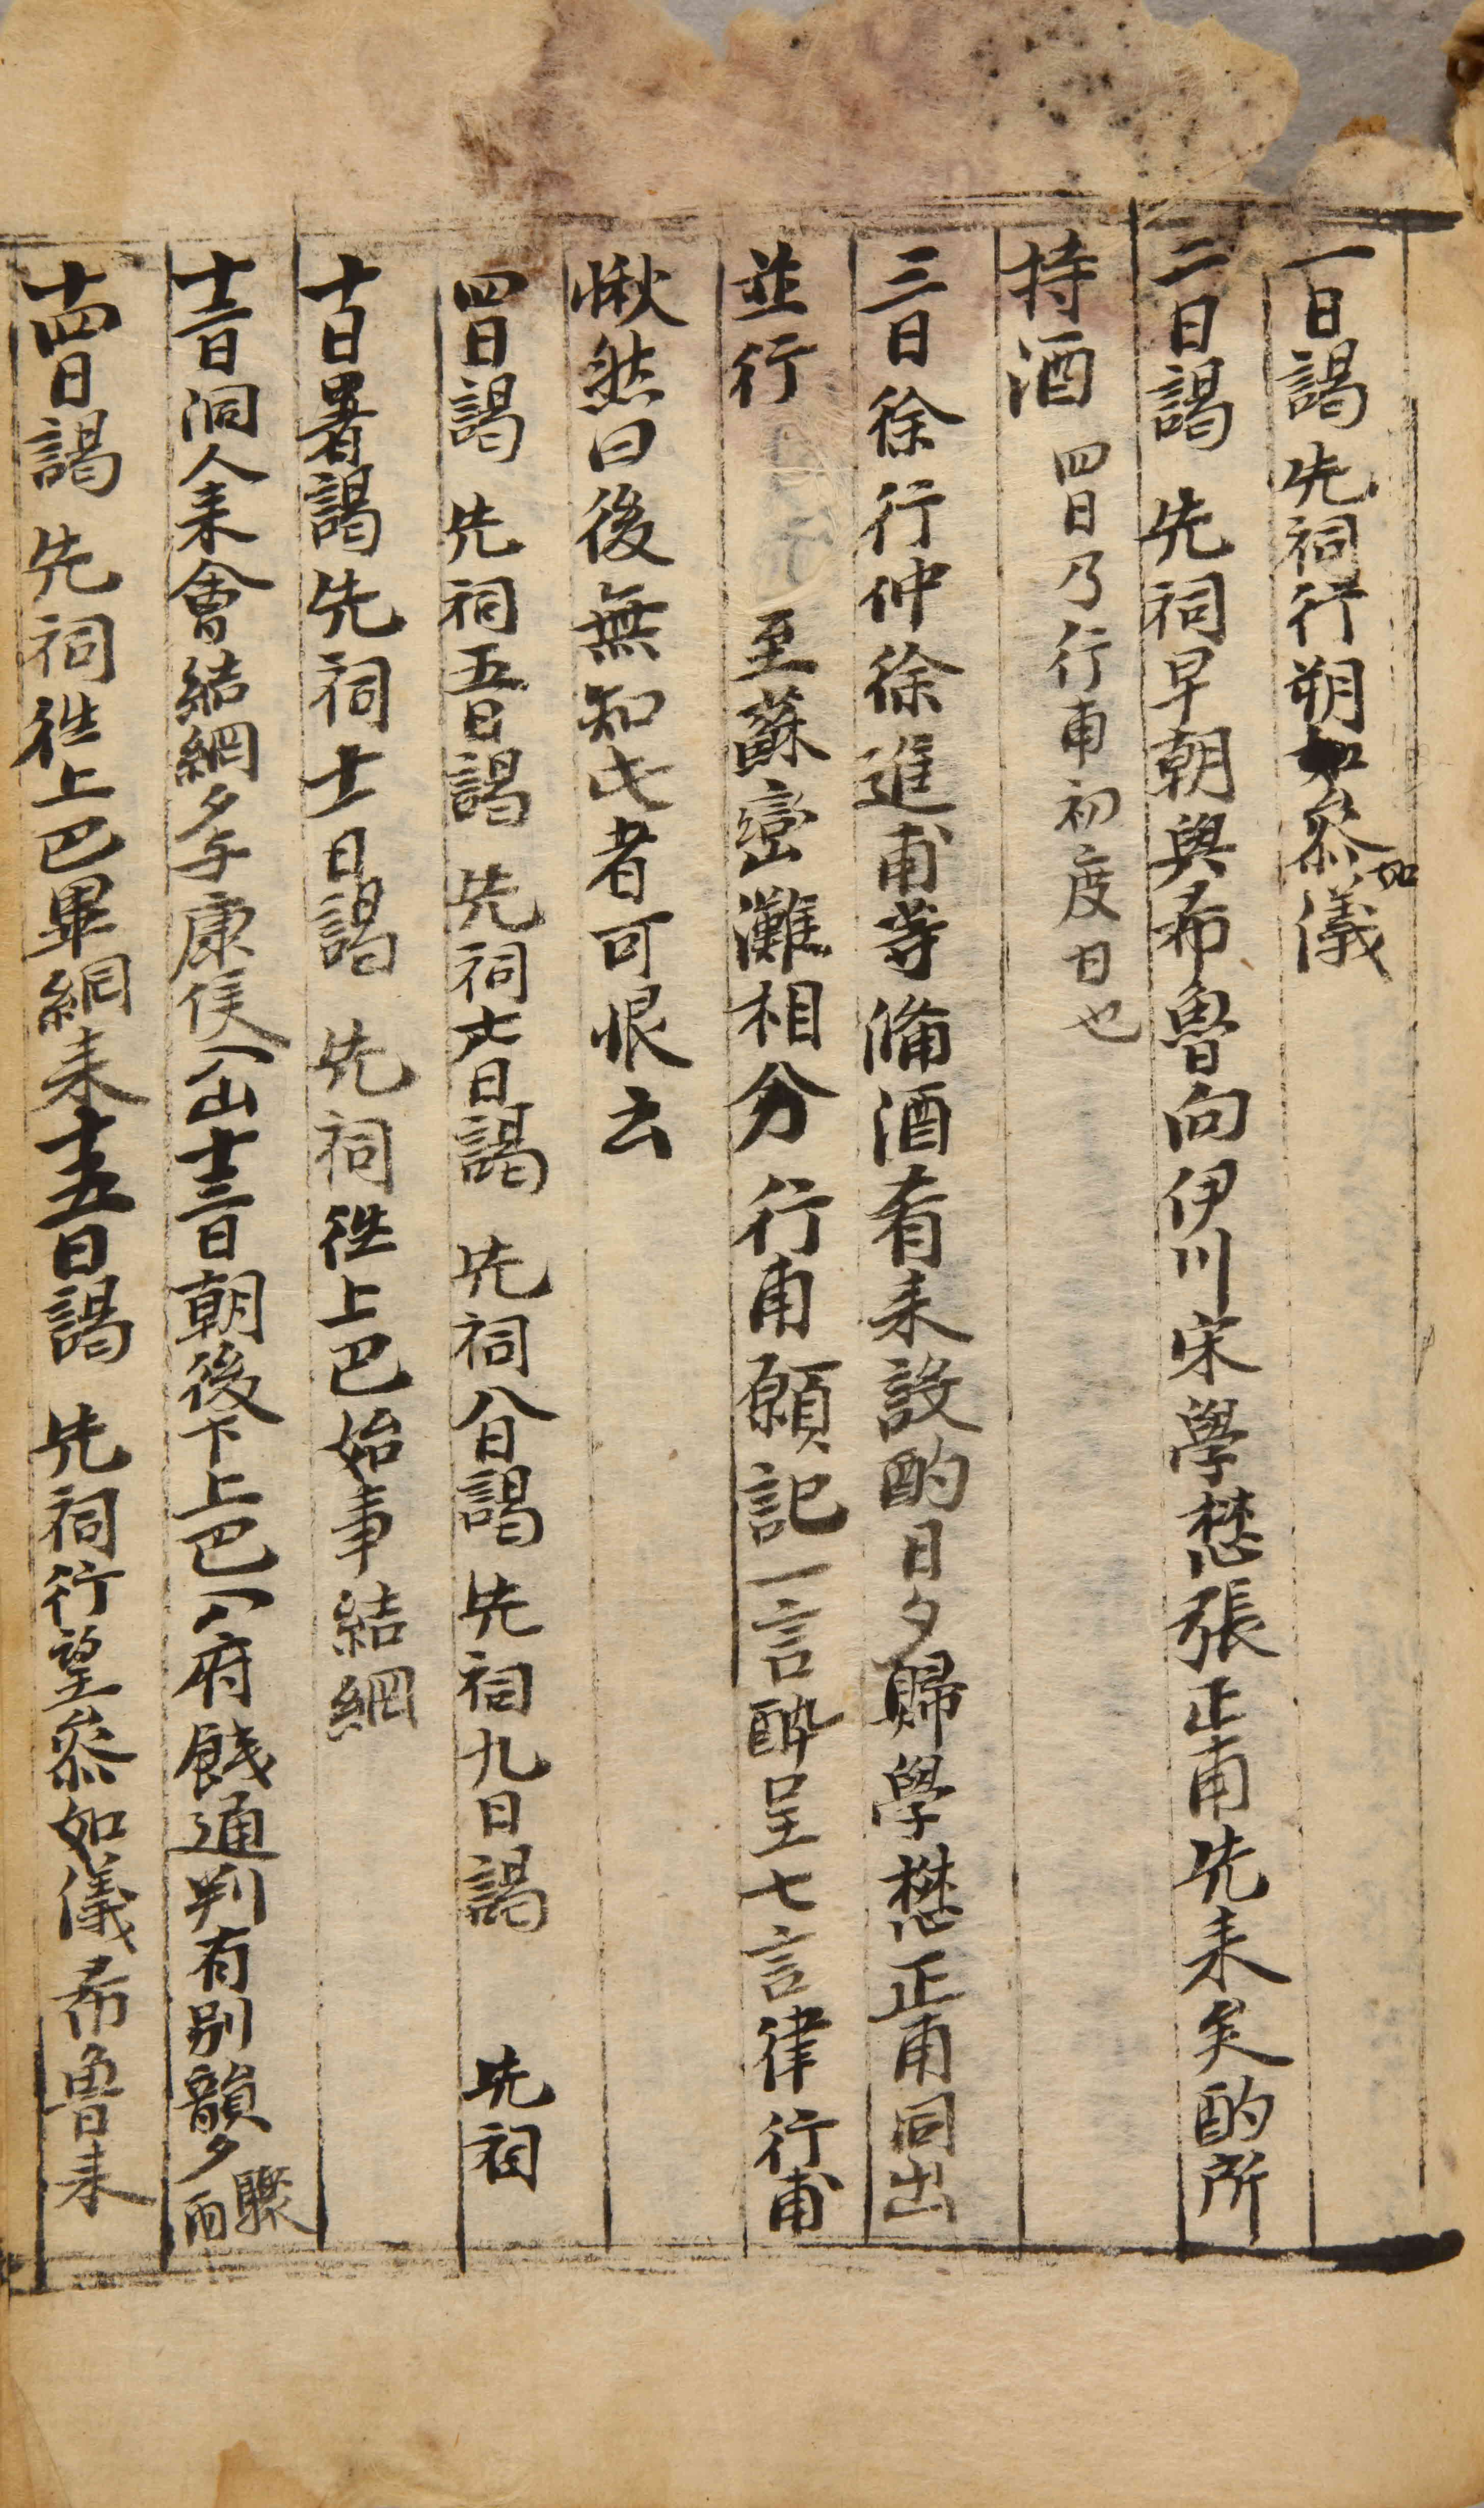 一日謁先祠行朔參如儀
二日謁 先祠早朝與希魯向伊川宋學懋張正甫先来矣酌所
持酒 四日乃行甫初度日也
三日徐行仲徐進甫等備酒肴来設酌日夕歸學懋正甫同出
並行 至蘇巒灘相分行甫願記一言酔呈七言律行甫
愀然曰後無知此者可恨云
四日謁 先祠五日謁 先祠六日謁 先祠八日謁先祠九日謁 先祠
十日署謁先祠十一日謁 先祠徃上巴始事結網
十二日洞人来會結網夕与康侯入山十三日朝後下上巴入府餞通判有别韻夕驟雨
十四日謁 先祠徃上巴畢網来十五日謁 先祠行望參如儀希魯来